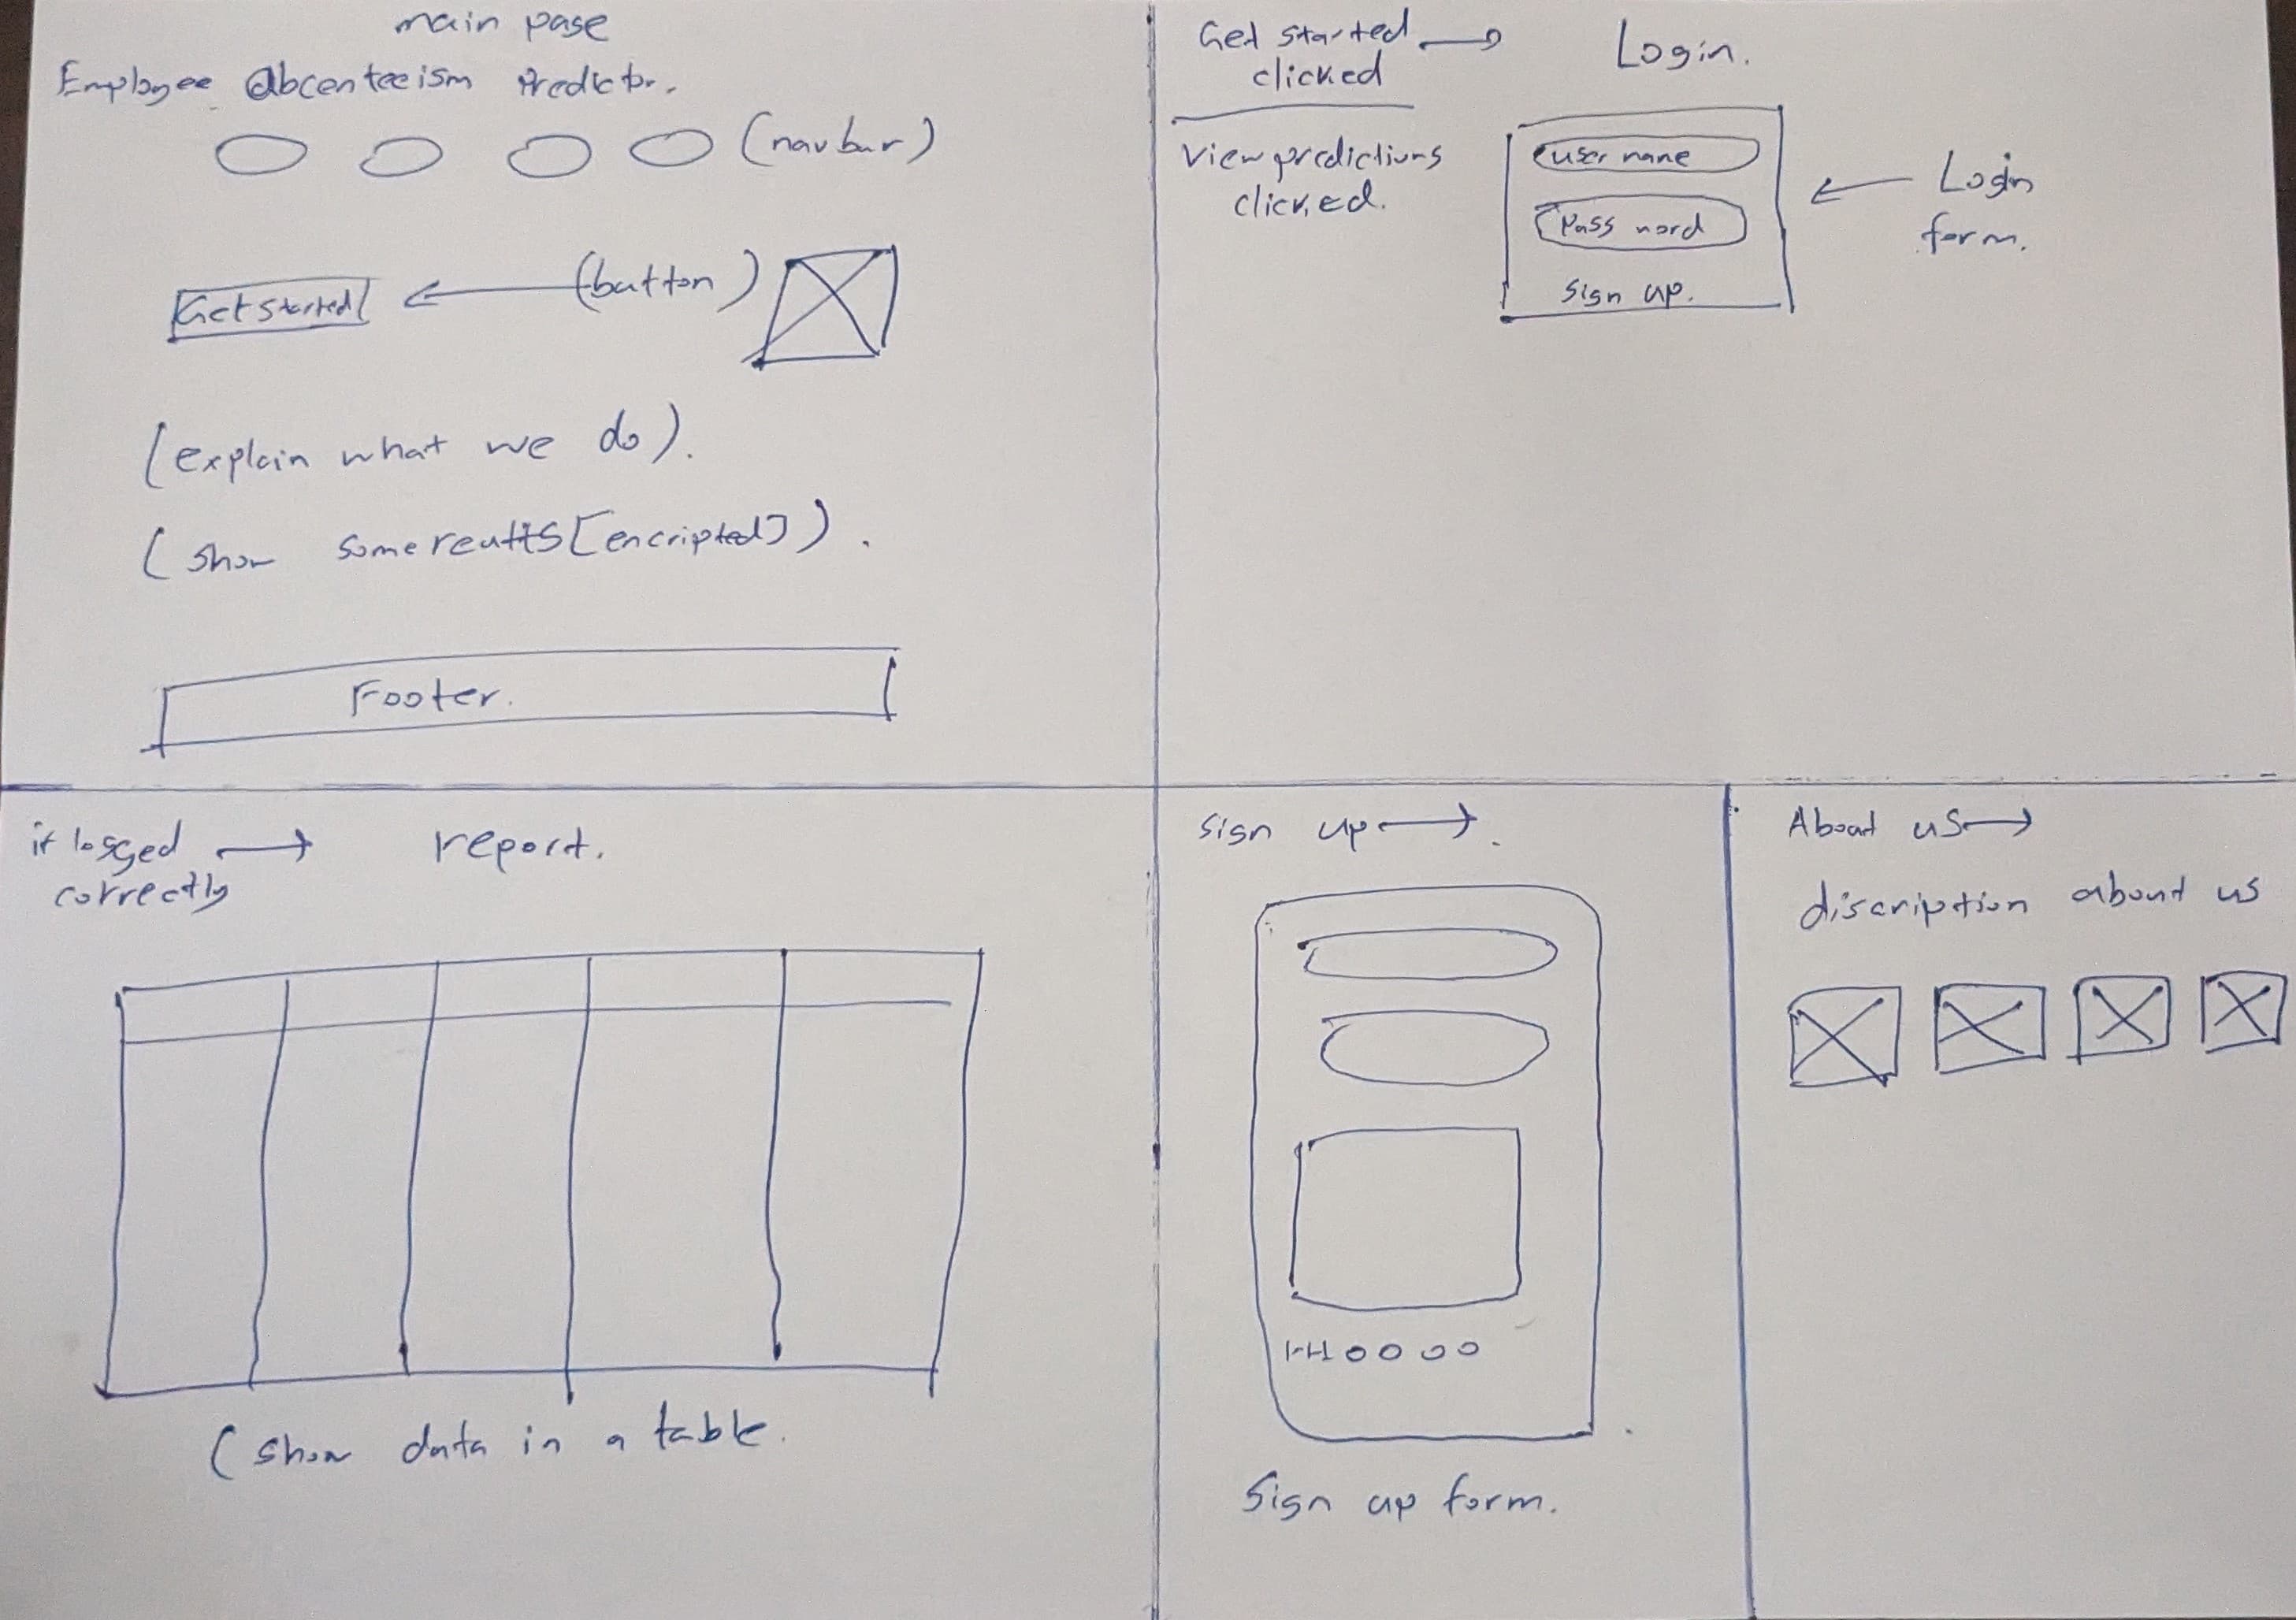 main page
Employee abcenteeism Predictor.
(navbar)
Get started
(button)
(explain what we do).
(show some [encripted]).
Footer.
Get started
clicked
Login.
View predictions
clicked.
user name
Pass word
Sign up.
Login
form.
if logged
correctly
report.
(show data in a table.
Sign up
Sign up form.
About us
discription about us